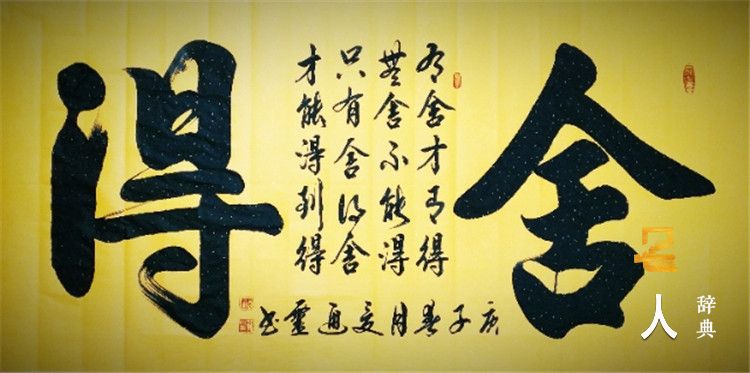 舍
有舍才有得
無舍不能得
只有舍得舍
才能得到得
得
庚子春月
靈书
人
辞典